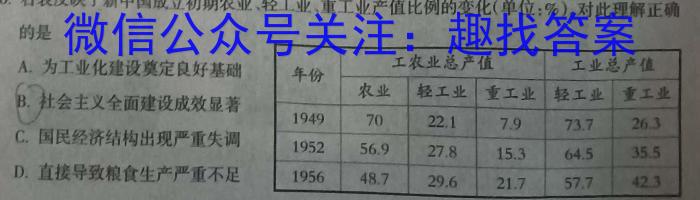 右表反映了新中国成立初期农业、轻工业、重工业产值比例的变化(单位:%),对此理解正确
的是
微信公众号关注：趣找答案
A. 为工业化建设奠定良好基础
B. 社会主义全面建设成效显著
C. 国民经济结构出现严重失调
D. 直接导致粮食生产严重不足
年份 工农业总产值 工业总产值
农业 轻工业 重工业 轻工业 重工业
1949 70 22.1 7.9 73.7 26.3
1952 56.9 27.8 15.3 64.5 35.5
1956 48.7 29.6 21.7 57.7 42.3